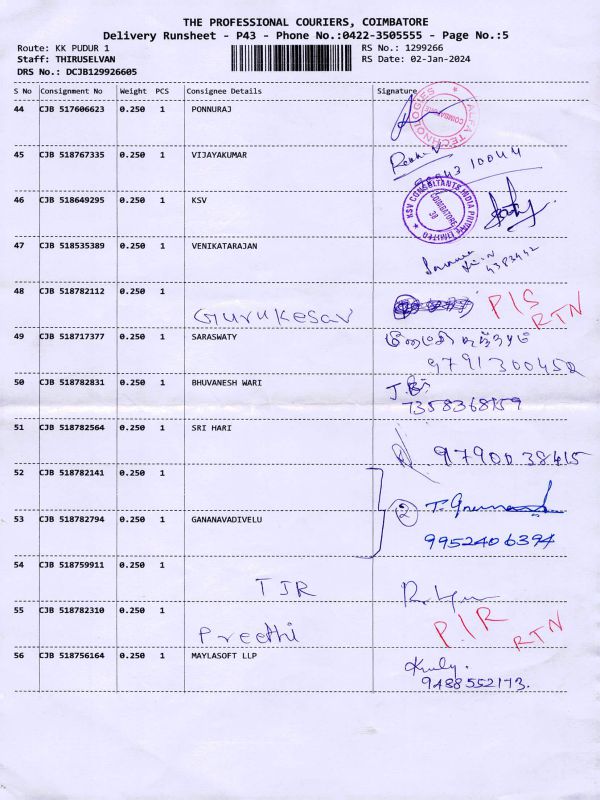 THE PROFESSIONAL COURIERS, COIMBATORE
Delivery Runsheet - P43 - Phone No.:0422-3505555 - Page No.:5
Route: KK PUDUR 1 RS No.: 1299266
Staff: THIRUSELVAN RS Date: 02-Jan-2024
DRS No.: DCJB129926605
S No Consignment No Weight PCS Consignee Details Signature
44 CJB 517606623 0.250 1 PONNURAJ
ALFA TECHNOLOGIES COIMBATORE
45 CJB 518767335 0.250 1 VIJAYAKUMAR
10044
46 CJB 518649295 0.250 1 KSV
KSV CONSULTANTS INDIA PRIVATE LIMITED COIMBATORE
47 CJB 518535389 0.250 1 VENIKATARAJAN
48 CJB 518782112 0.250 1 Gurukesav P/S RTN
49 CJB 518717377 0.250 1 SARASWATY
9791300452
50 CJB 518782831 0.250 1 BHUVANESH WARI
7358368159
51 CJB 518782564 0.250 1 SRI HARI 9790038415
52 CJB 518782141 0.250 1
53 CJB 518782794 0.250 1 GANANAVADIVELU 2
9952406394
54 CJB 518759911 0.250 1 TJR
55 CJB 518782310 0.250 1 Preethi P/R RTN
56 CJB 518756164 0.250 1 MAYLASOFT LLP
9488552173.